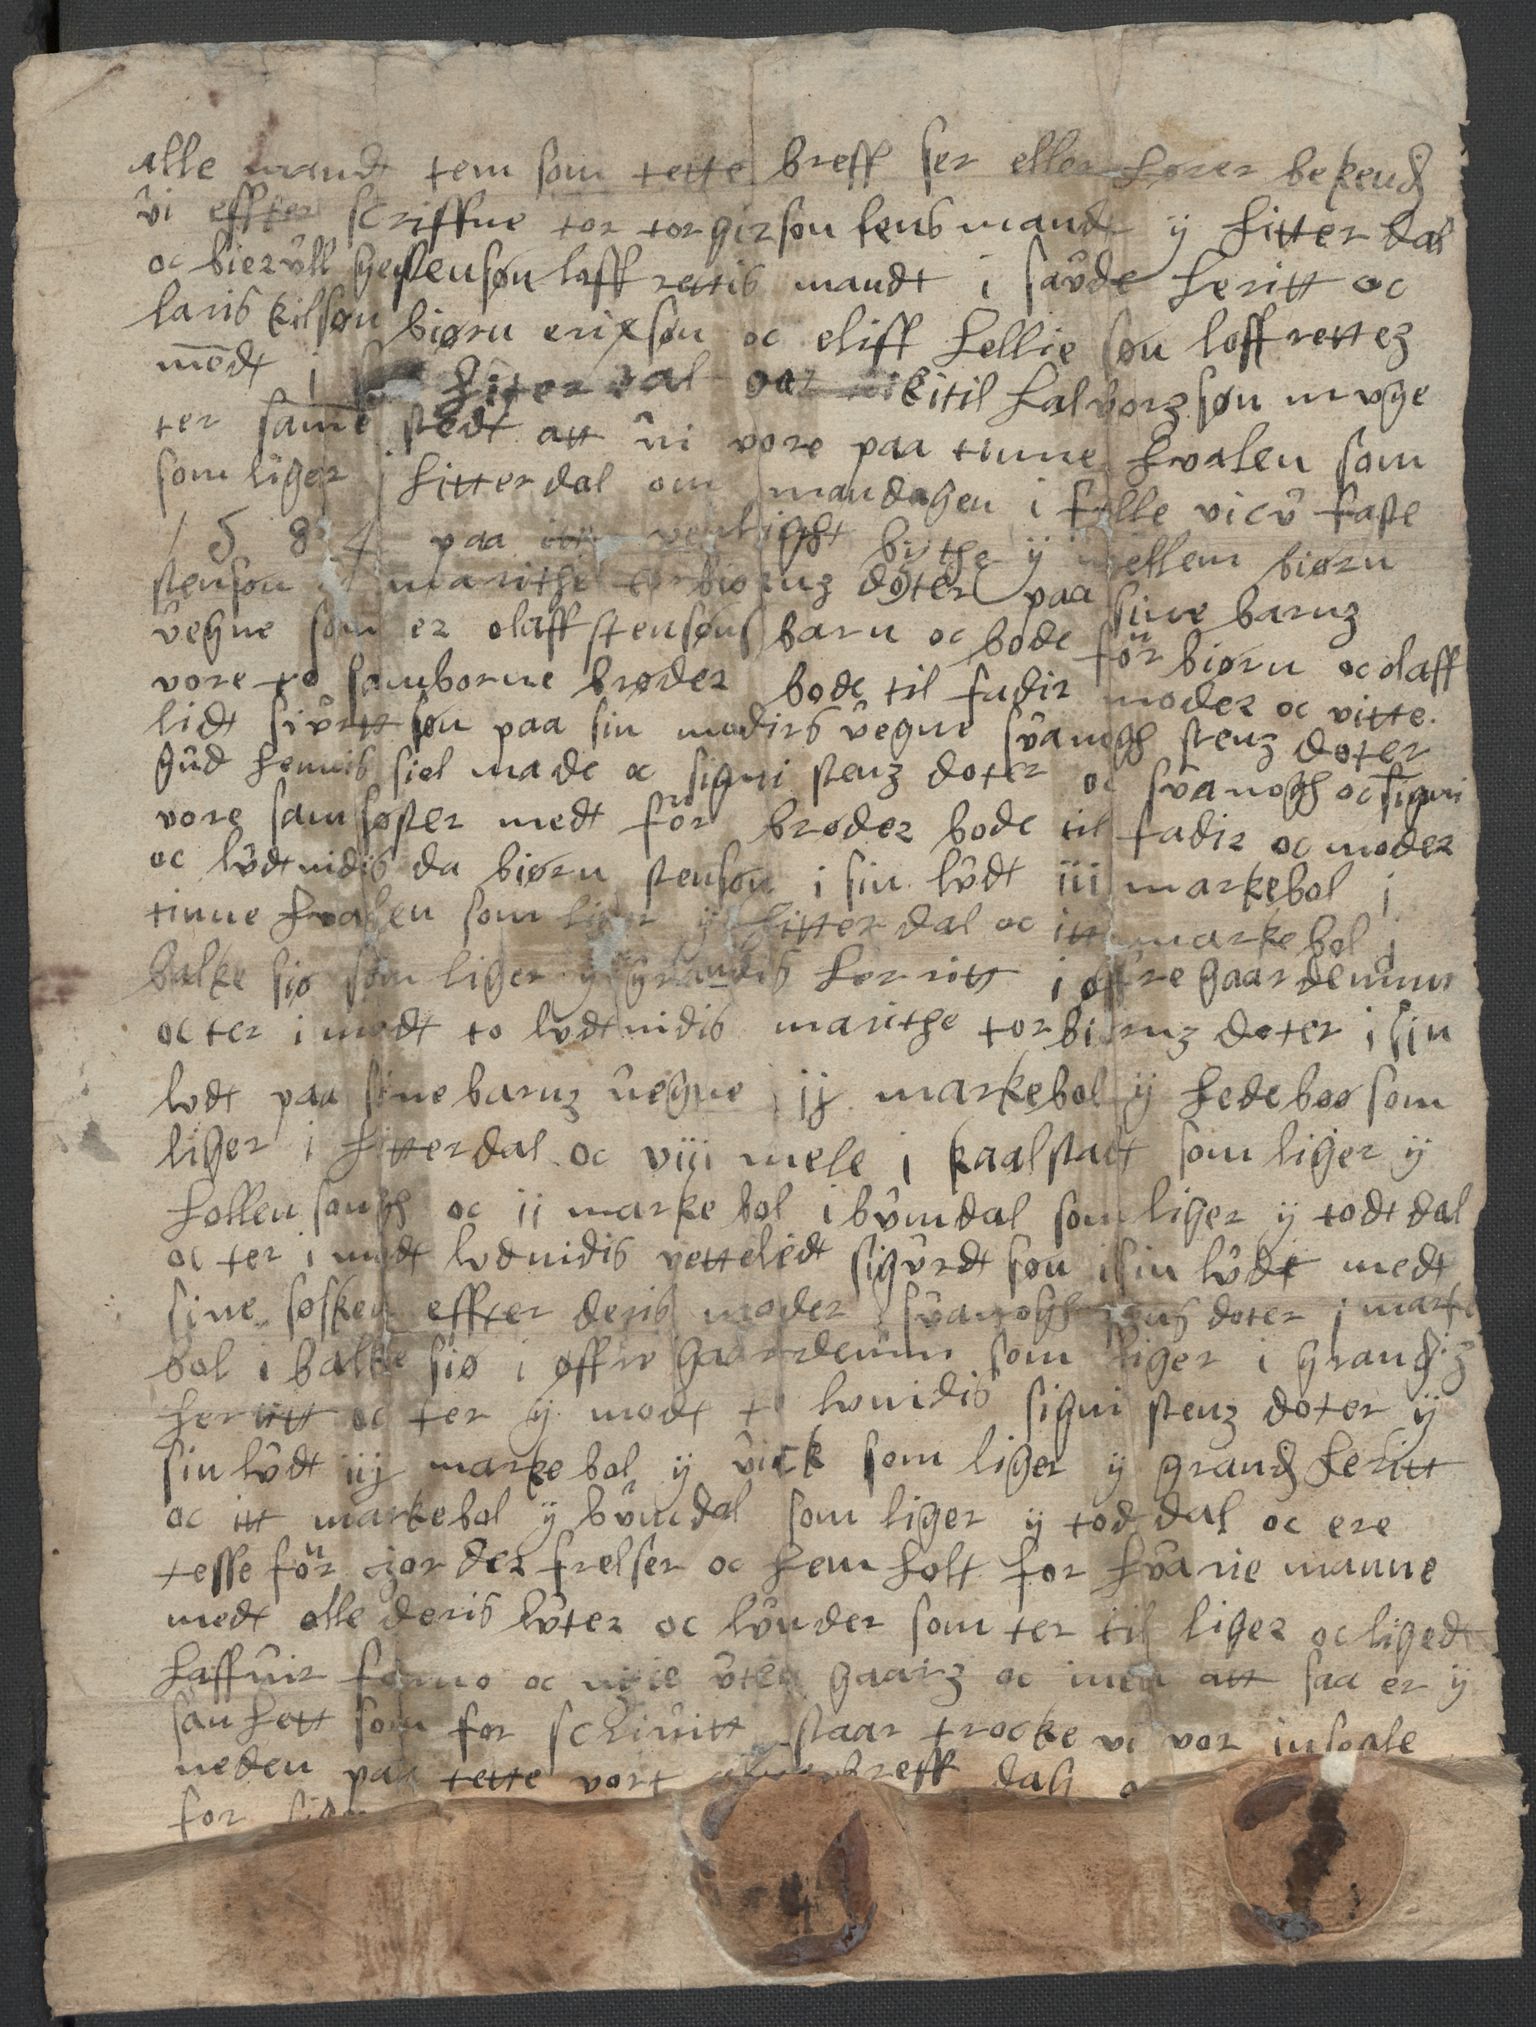 alle mandt tem som tette breff ser eller hører bekendz
vi effter scriffne tor torgirson lensmandt ÿ hitterdal
oc biervll stensøn laffrettis mandt i saude heritt oc
laris kilsøn biørn erixsøn oc eliff hellie søn loffrettez
mēdt i hiterdal oc kitil halvorzsøn
ter same stedt att vi vore paa tinne hvalen som
som liger i hitterdal om mandagen i fulle vicv faste
1584 paa itt venligt bythe ÿ mellem biørn
stenson oc marithe torbiørnz doter paa sine barnz
vegne som er olaff stensøns barn oc bode før biørn oc olaff
vore to samborne brøder bode til fadir moder oc vitte
lidt sivrttsøn paa sin modirs vegne svanogh stenz doter
gud hennis siel nade oc signi stenz doter oc svanogh oc signi
vore samsøster medt før brøder bode til fadir oc moder
oc lvdtnidis da biørn stensøn i sin lvdt iii markebol i
tinne hvalen som liger ÿ hitterdal oc itt markebol i
balke siø som liger ÿ grandis herritt i øffre gaardenum
oc ter i modt to lvdtnidis marithe torbiørnz doter i sin
lvdt paa sine barnz vegne ij markebol ÿ hedeboo som
liger i hitterdal oc viii mele i kaalstadt som liger ÿ
hollen songh oc ii markebol i bvmdal som liger ÿ todtdal
oc ter i modt lvdnidis vettelidt sigvrdt søn i sin lvdt medt
sine søsken effter deris moder svanogh stens doter i marke
bol i balke siø i øffre gaardenum som liger i grandiz
heritt oc ter ÿ modt to lvnidis signi stenz doter ÿ
sin lvdt iij markebol ÿ vick som liger ÿ grandz heritt
oc itt markebol ÿ bvmdal som liger ÿ toddal oc ere
tesse før jorder frelser oc hemholt for hvarie manne
medt alle deris lvter oc lvnder som ter til liger oc ligedt
haffuir forno oc nyie vten gaarz oc inen att saa er ÿ
sanhett som for scriuitt staar trocke vi vor insegle
neden paa tette vort breff dag
for